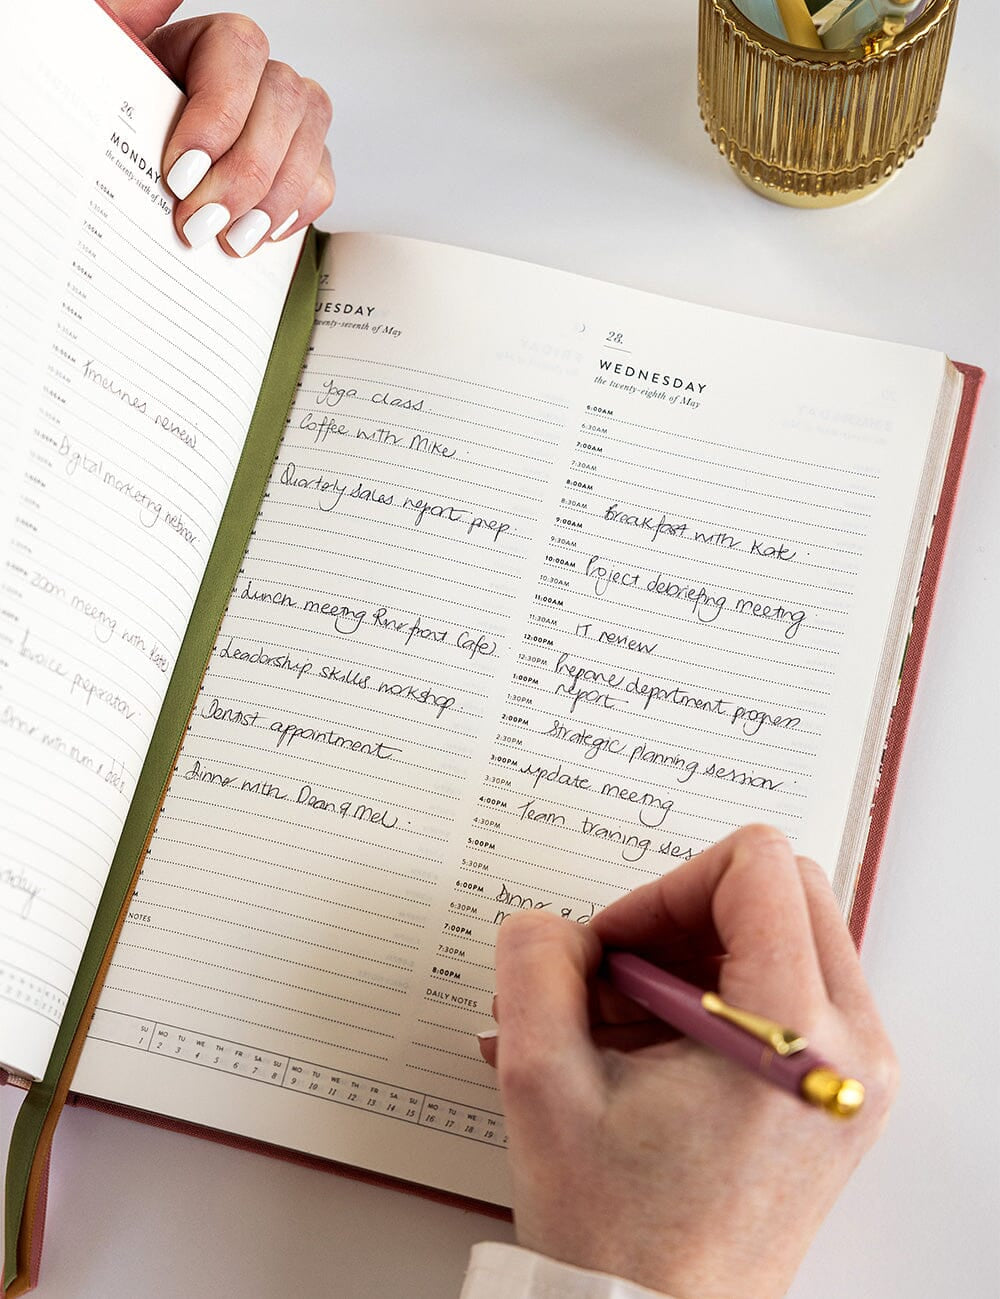 26.
MONDAY
the twenty-sixth of May
6:00AM
6:30AM
7:00AM
7:30AM
8:00AM
8:30AM
9:00AM
9:30AM
10:00AM
10:30AM
11:00AM
Timelines review
Digital marketing webinar
Zoom meeting with Kate
Invoice preparation
Dinner with mum & dad
7.
UESDAY
twenty-seventh of May
Yoga class
Coffee with Mike
Quarterly sales report prep
Lunch meeting Riverfront Cafe)
Leadership skills workshop
Dentist appointment
Dinner with Dean & Mel
NOTES
28.
WEDNESDAY
the twenty-eighth of May
6:00AM
6:30AM
7:00AM
7:30AM
8:00AM
8:30AM Breakfast with Kate
9:00AM
9:30AM
10:00AM Project debriefing meeting
10:30AM
11:00AM
11:30AM IT review
12:00PM
12:30PM Prepare department progress
1:00PM report
1:30PM
2:00PM Strategic planning session
2:30PM
3:00PM Update meeting
3:30PM
4:00PM Team training ses
4:30PM
5:00PM
5:30PM
6:00PM Dinner & d
6:30PM m
7:00PM
7:30PM
8:00PM
DAILY NOTES
SU MO TU WE TH FR SA SU MO TU WE TH FR SA SU MO TU WE TH
1 2 3 4 5 6 7 8 9 10 11 12 13 14 15 16 17 18 19 2